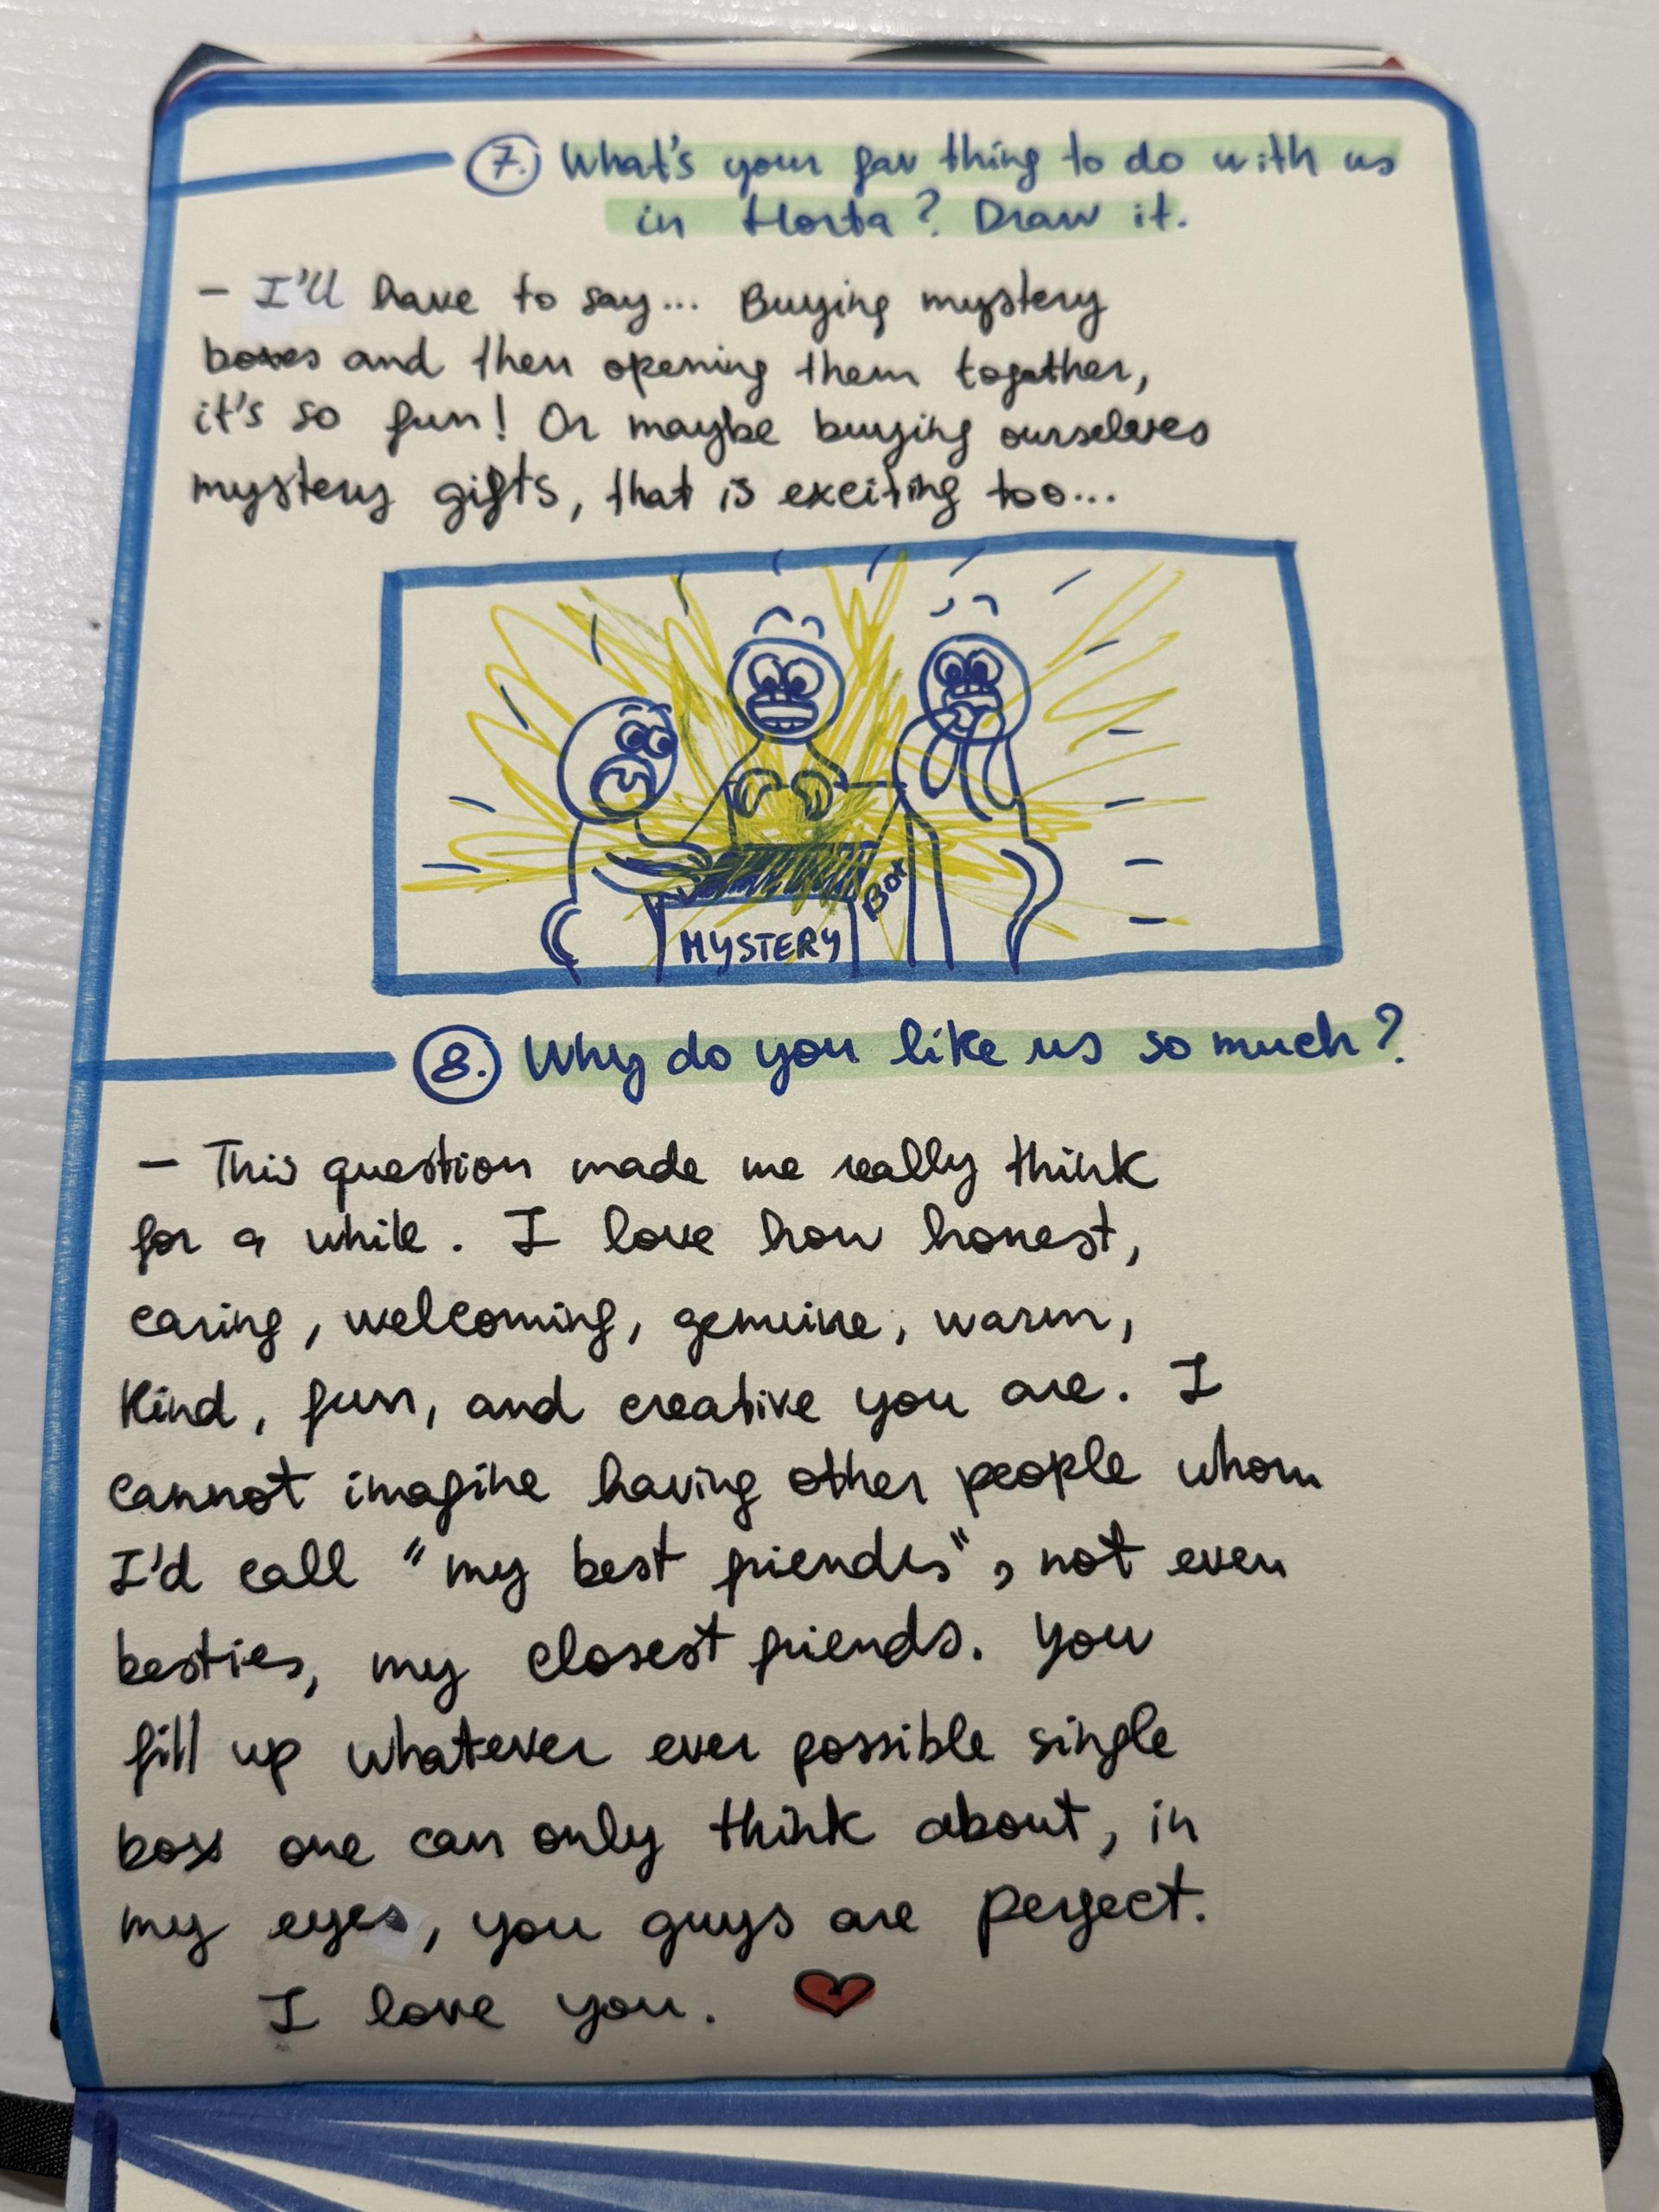 7. What's your fav thing to do with us
in Horta? Draw it.
- I'll have to say... Buying mystery
boxes and then opening them together,
it's so fun! Or maybe buying ourselves
mystery gifts, that is exciting too...
MYSTERY
BOX
8. Why do you like us so much?
- This question made me really think
for a while. I love how honest,
caring, welcoming, genuine, warm,
kind, fun, and creative you are. I
cannot imagine having other people whom
I'd call "my best friends", not even
besties, my closest friends. You
fill up whatever ever possible single
box one can only think about, in
my eyes, you guys are perfect.
I love you.